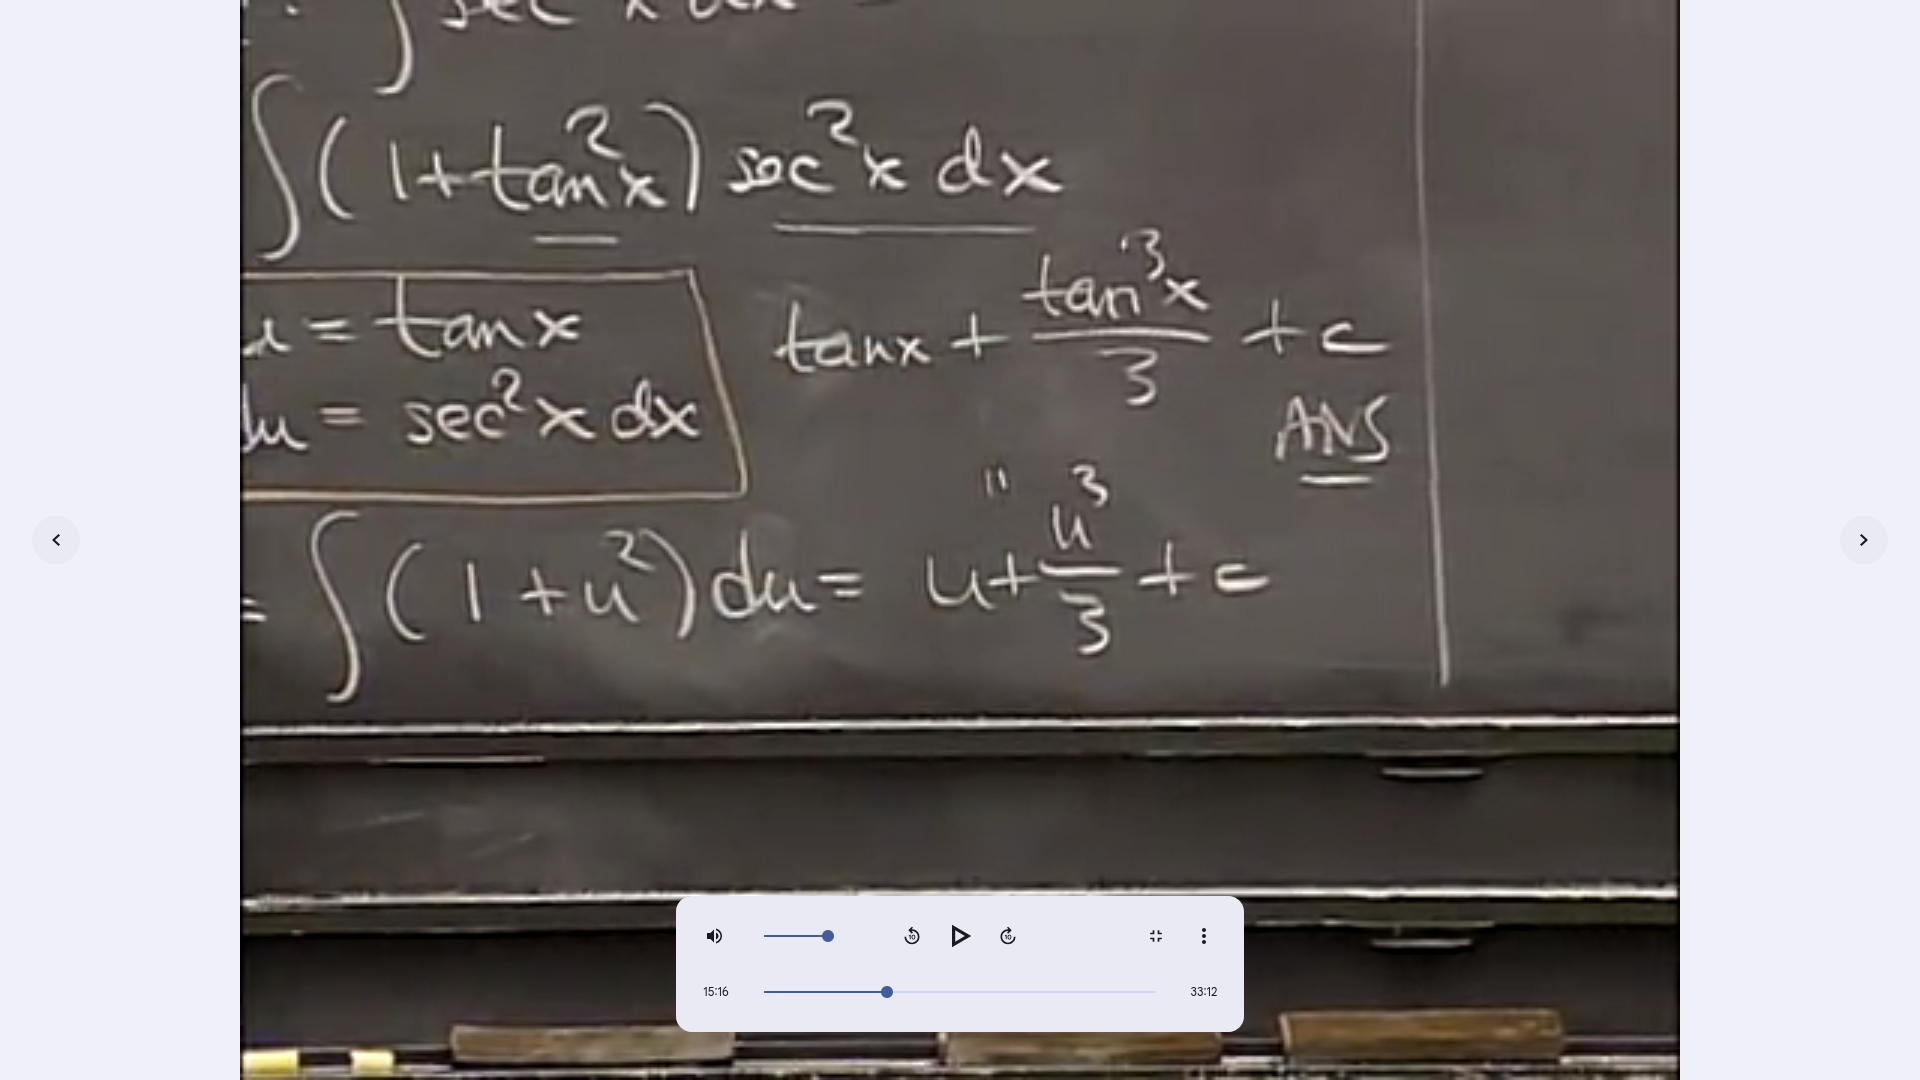 ∫ sec x dx
∫ (1 + tan²x) sec²x dx
u = tan x
du = sec²x dx
tan x + tan³x / 3 + c
ANS
= ∫ (1 + u²) du = u + u³ / 3 + c
15:16
33:12